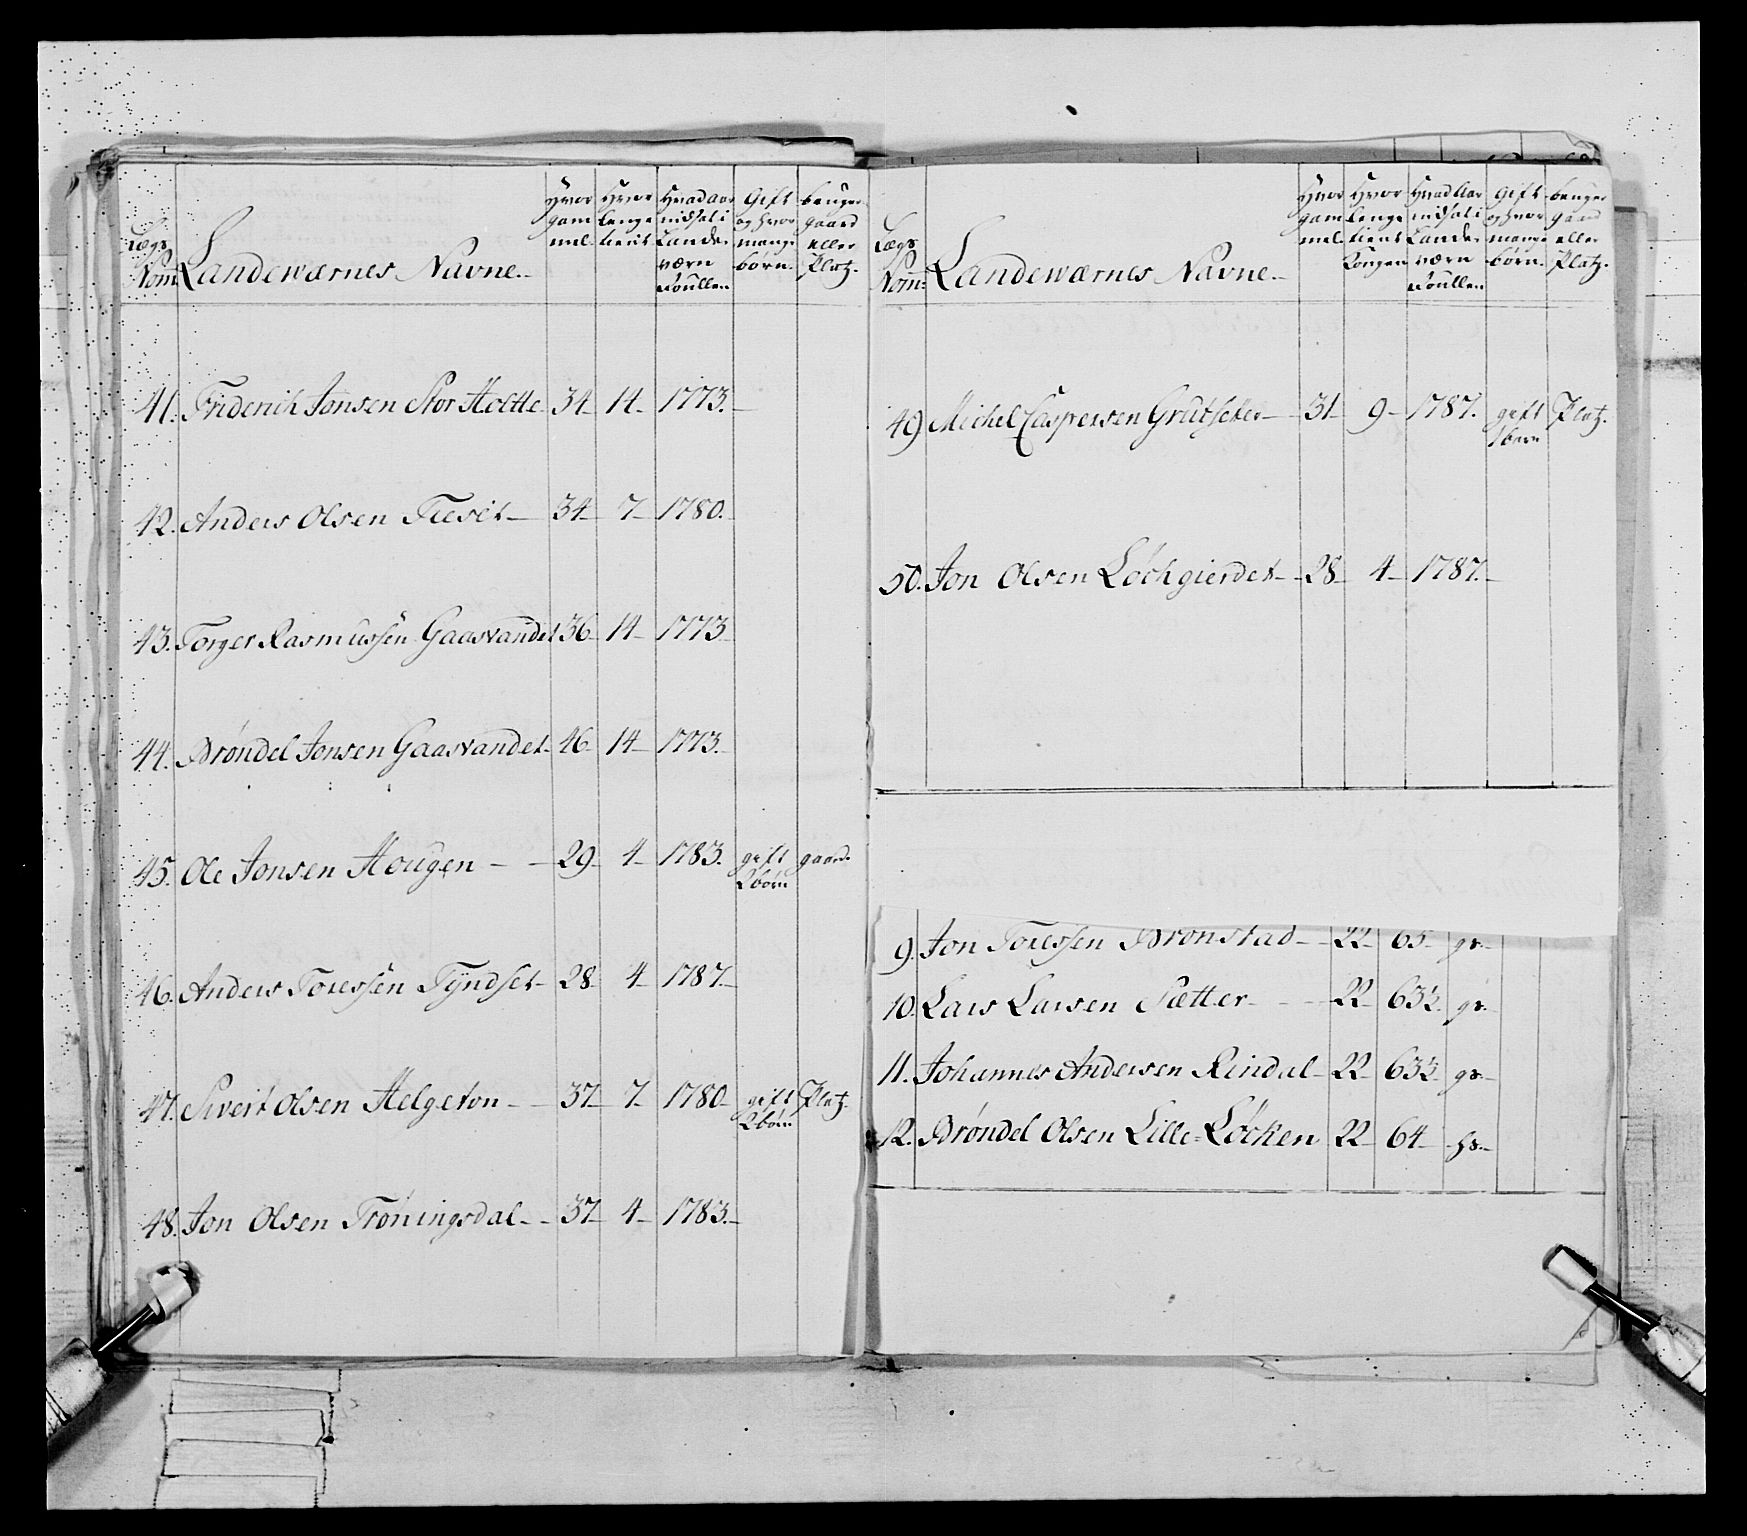 Lægs Nom:
Landewærnes Navne
Hvor gam mel
Hvor lenge tient
Hvad Aar indsat i Lande værn Roullen
Gift og hvor mange børn.
bruger gaard eller Platz.
41. Friderik Jonsen Stor Holtte 34 14 1773.
42. Anders Olsen 34 7 1780.
43. Torger Rasmussen Gaasvandet 36 14 1773
44. Brøndel Jonsen Gaasvandet 46 14 1773.
45. Ole Jonsen Hougen 29 4 1783. gift 2 børn gaard
46. Anders Toressen Tyndset 28 4 1787.
47. Sivert Olsen Helgeton 37 7 1780 gift 2 børn Platz
48. Jon Olsen Trøningsdal 37 4 1783.
Lægs Nom:
Landewærnes Navne
Hvor gam mel
Hvor lenge tient Kongen
Hvad Aar indsat i Lande værn Roullen
Gift og hvor mange børn.
bruger gaard eller Platz.
49 Michel Caspersen 31 9 1787. gift 1 barn Platz.
50. Jon Olsen Løchgierdet 28 4 1787.
9. Jon Toressen Brønstad 22 63 gr
10. Lars Larsen Sætter 22 63½ gr
11. Johannes Andersen Rindal 22 63½ gr
12. Brøndel Olsen Lille-Løcken 22 64